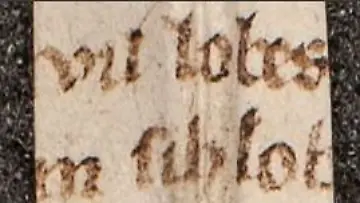 vil lobes
m siblot